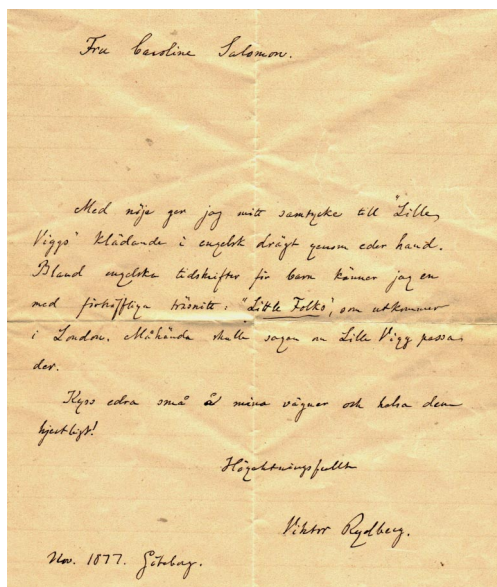 Fru Caroline Salomon.
Med nöje ger jag mitt samtycke till "Lille
Viggs" klädande i engelsk drägt genom eder hand.
Bland engelska tidskrifter för barn känner jag en
med förträffliga träsnitt: "Little Folks", som utkommer
i London. Måhända skulle sagan om Lille Vigg passa
der.
Kyss edra små å mina vägnar och helsa dem
hjertligt!
Högaktningsfullt
Viktor Rydberg.
Nov. 1877. Göteborg.